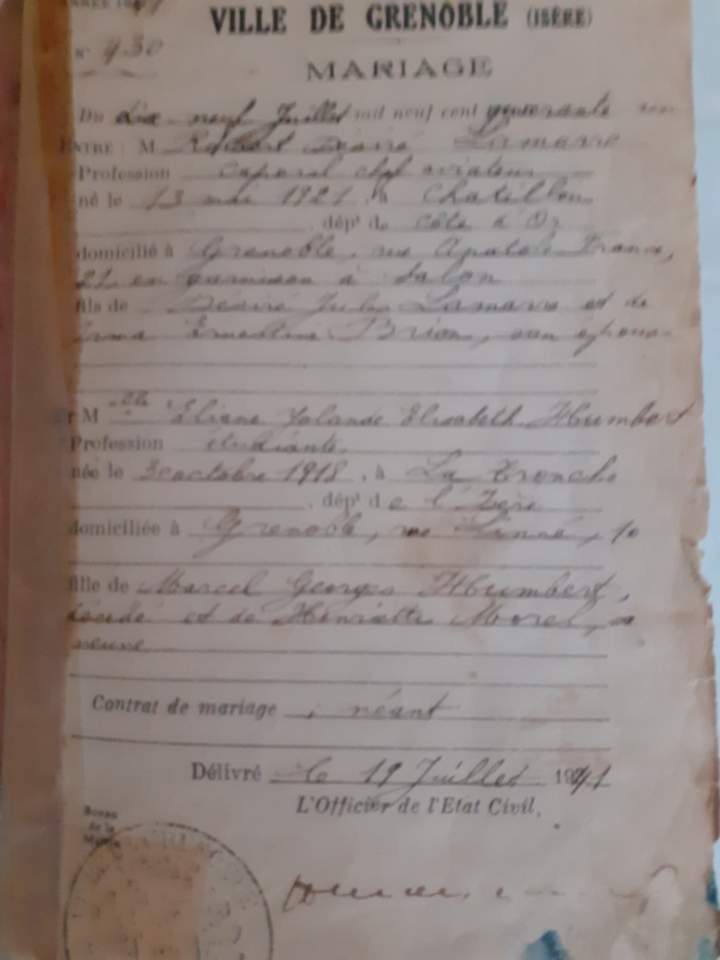 VILLE DE GRENOBLE (ISÈRE)
N° 930
MARIAGE
Du dix neuf Juillet mil neuf cent quarante un
ENTRE: M Robert Désiré Lamarre
Profession caporal chef aviateur
né le 13 mai 1921, à Chatillon
dép' de Côte d'Or
domicilié à Grenoble, rue Anatole France,
21 en garnison à Salon
fils de Désiré Jules Lamarre et de
Irma Ernestine Brion, son épouse
M elle Eliane Yolande Elisabeth Humbert
Profession étudiante
née le 3 octobre 1918, à La Tronche
dép' de l'Isère
domiciliée à Grenoble, rue Linné, 10
fille de Marcel Georges Humbert,
décédé et de Henriette Morel, sa
veuve
Contrat de mariage, néant
Délivré le 19 Juillet 1941
L'Officier de l'Etat Civil,